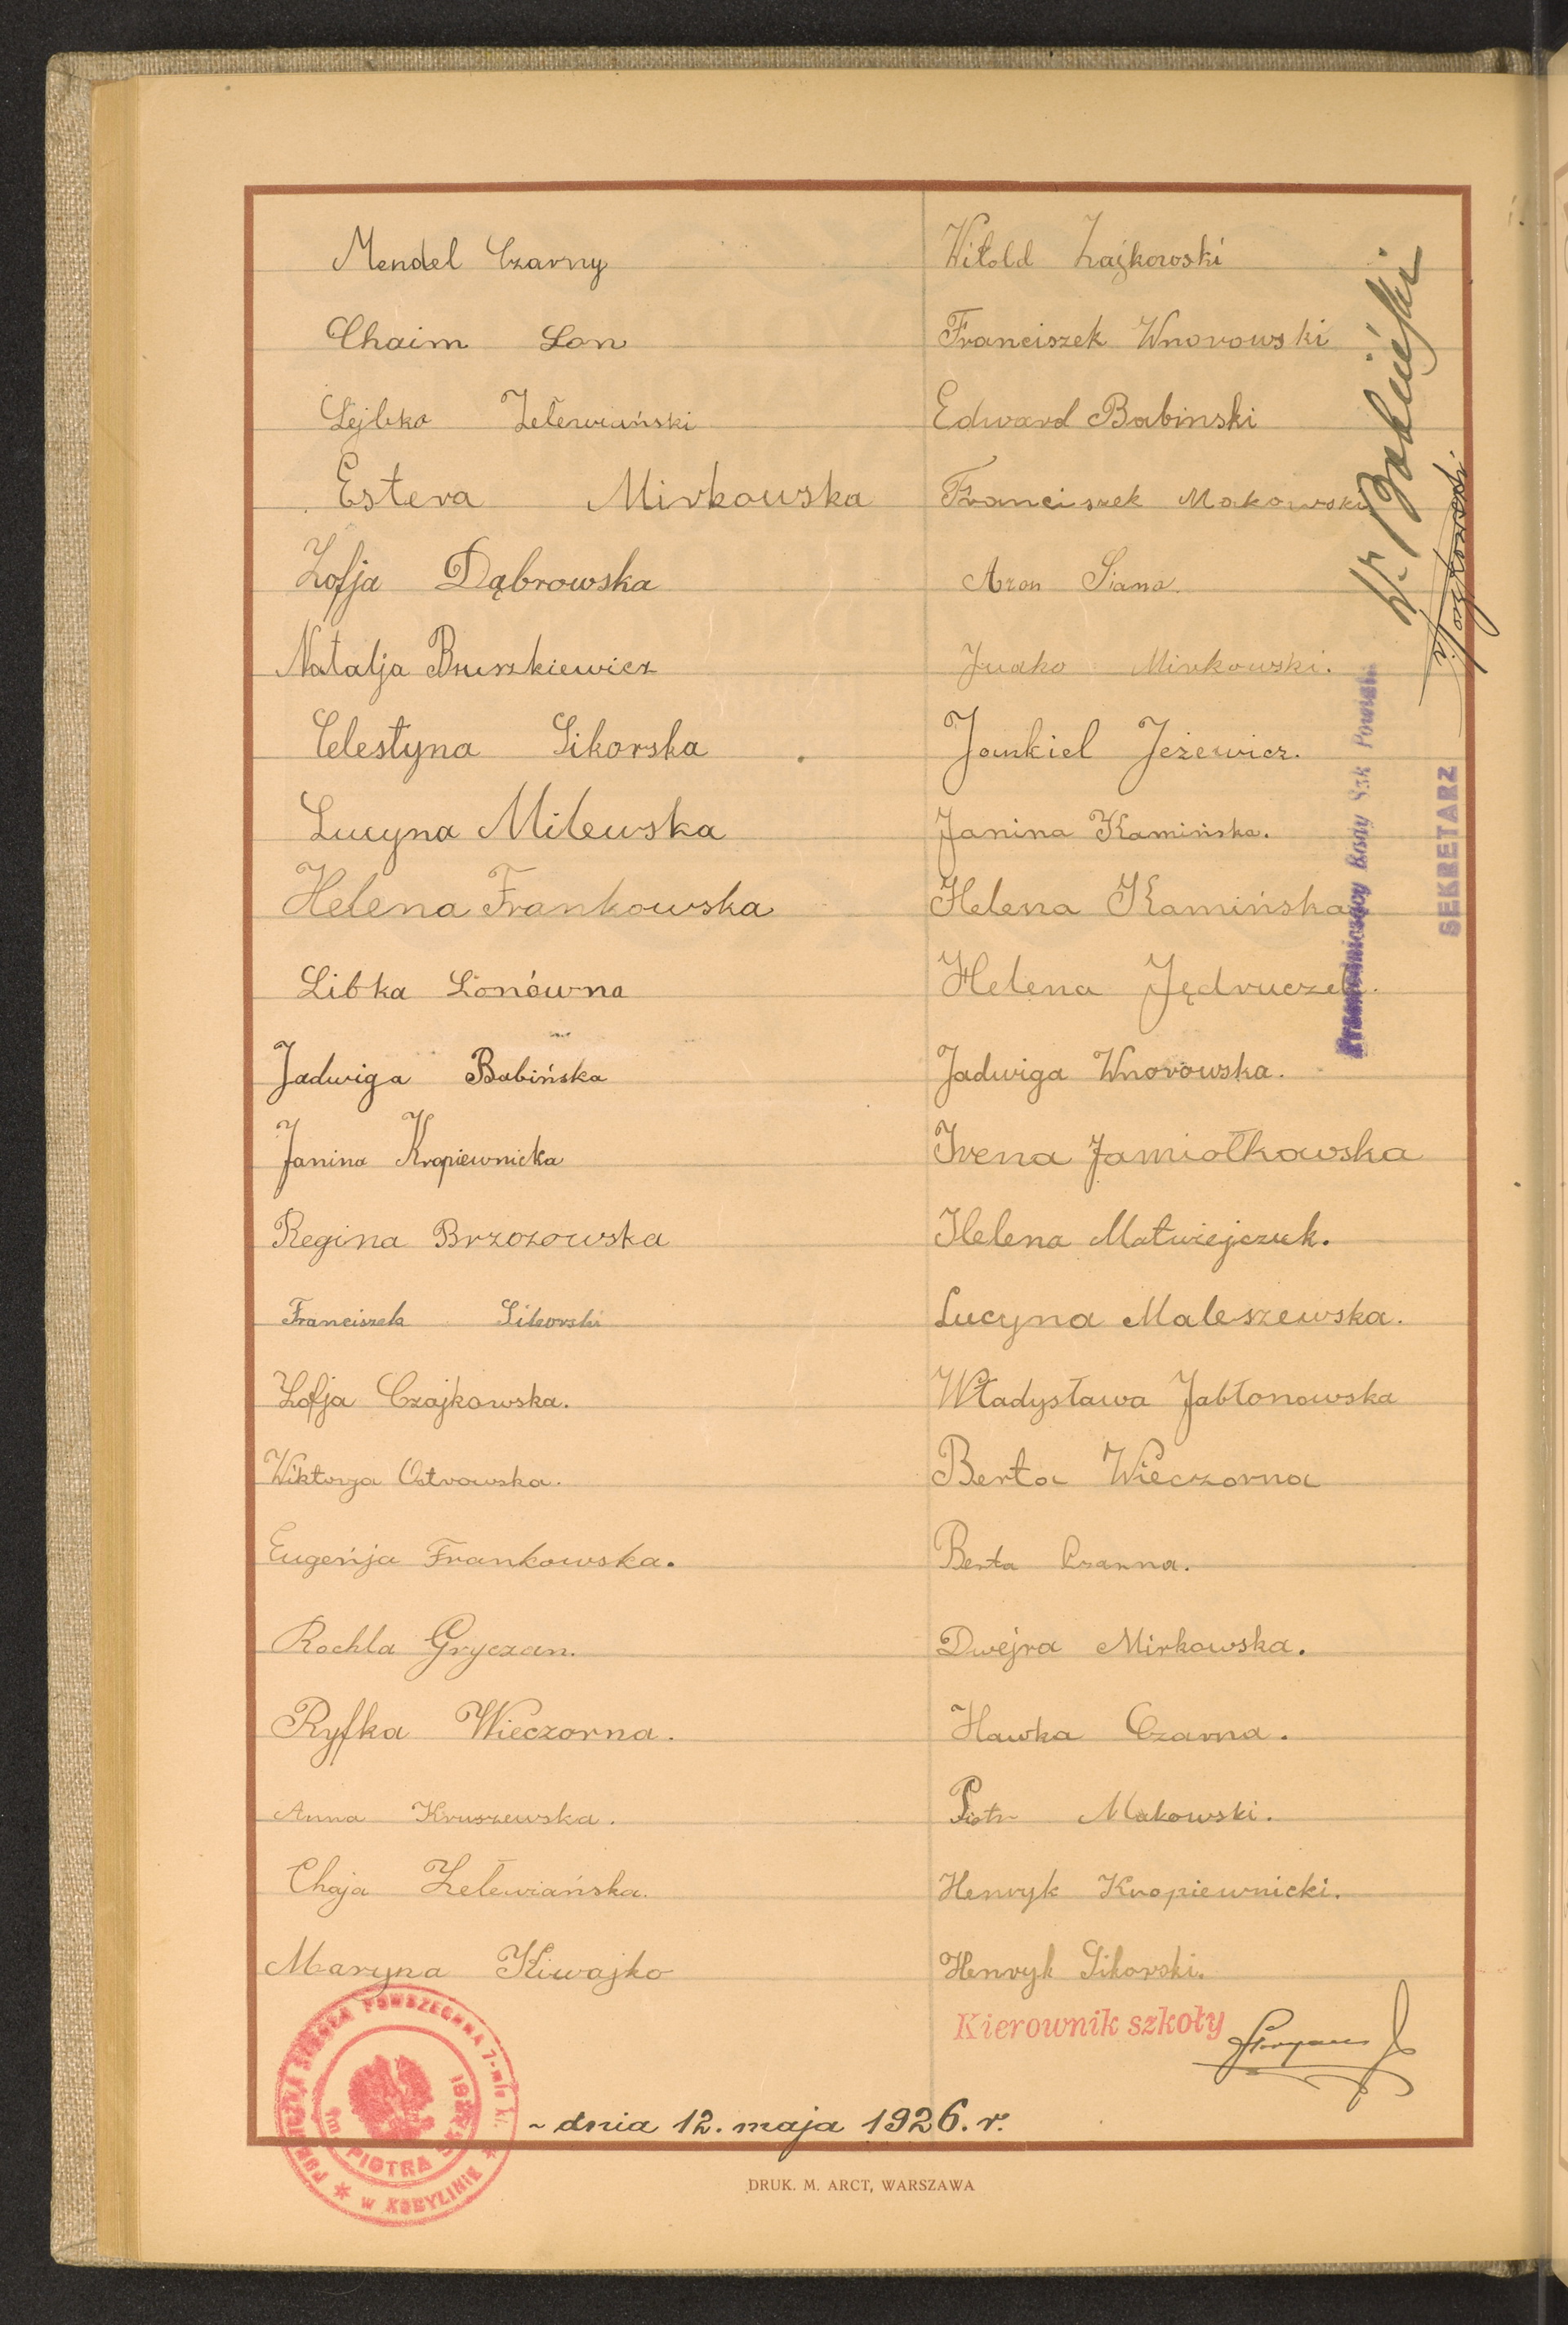 Mendel Czarny
Chaim Lon
Lejbko Zelewiański
Estera Mirkowska
Zofja Dąbrowska
Natalja Bruszkiewicz
Celestyna Sikorska
Lucyna Milewska
Helena Frankowska
Libka Lonówna
Jadwiga Babińska
Janina Kropiewnicka
Regina Brzozowska
Franciszek Sikorski
Zofja Czajkowska.
Wiktorja Ostrowska.
Eugenja Frankowska.
Rochla Gryczan.
Ryfka Wieczorna.
Anna Kruszewska.
Chaja Zelewiańska.
Maryna Kiwajko
Witold Zajkowski
Franciszek Wnorowski
Edward Babinski
Franciszek Makowski
Aron Siano.
Judko Mirkowski.
Jankiel Jeżewicz.
Janina Kamińska.
Helena Kamińska
Helena Jędruczek.
Jadwiga Wnorowska.
Irena Jamiołkowska
Helena Matwiejczuk.
Lucyna Maleszewska.
Władysława Jabłonowska
Berta Wieczorna
Berta Czarna.
Dwejra Mirkowska.
Hawka Czarna.
Piotr Makowski.
Henryk Kropiewnicki.
Henryk Sikorski.
Kierownik szkoły
Przewodniczący Rady Szk Powiat.
SEKRETARZ
PUBLICZNA SZKOŁA POWSZECHNA 7-mio kl. W KOBYLINIE
im PIOTRA SKARGI
~ dnia 12. maja 1926. r.
DRUK. M. ARCT, WARSZAWA